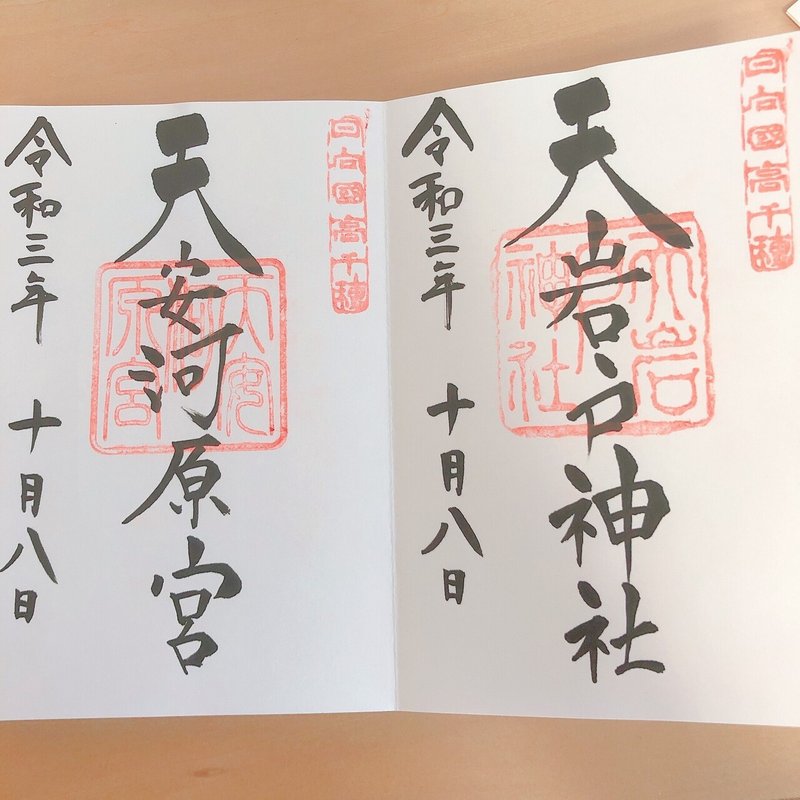 日向國高千穂
天岩戸神社
天岩戸神社
令和三年 十月八日
日向國高千穂
天安河原宮
天安河原宮
令和三年 十月八日